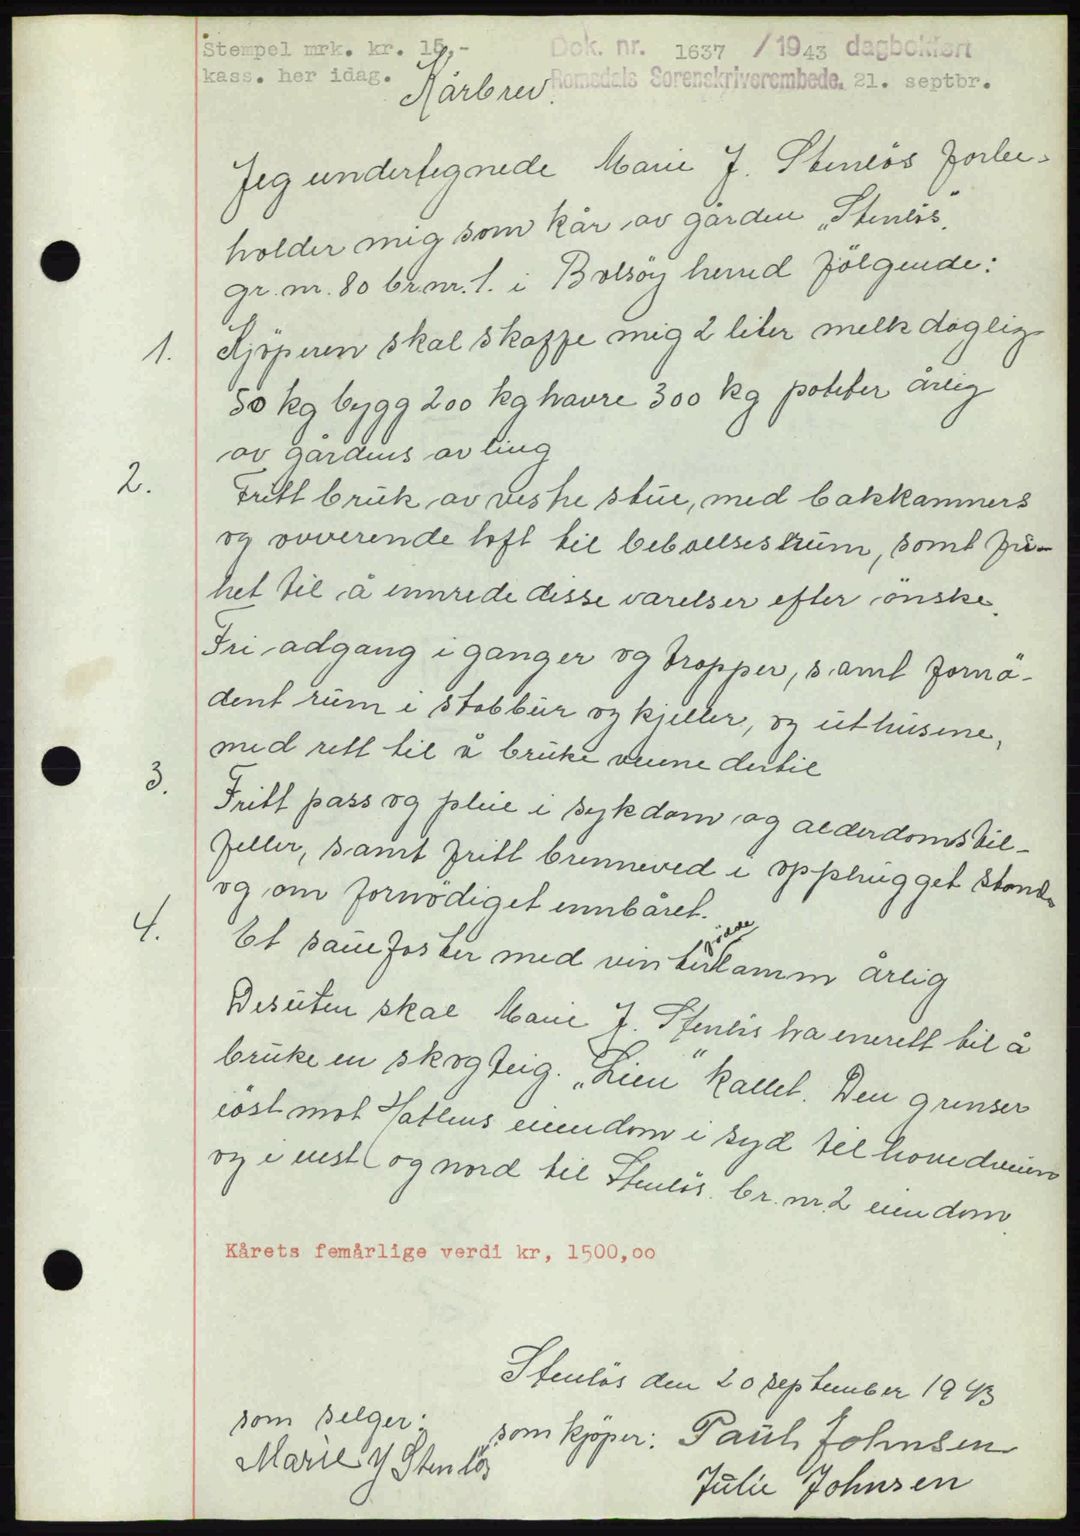 Stempel mrk. kr. 15,-
kass. her idag.
Dok. nr. 1637 /1943 dagbokført
Romsdals Sorenskriverembede. 21. septbr.
Kårbrev.
Jeg undertegnede Marie J. Stenlös forbe-
holder mig som kår av gården „Stenlös".
gr. nr. 80 br.nr. 1. i Bolsöy herred fölgende:
1. Kjöperen skal skaffe mig 2 liter melk daglig
50 kg bygg 200 kg havre 300 kg poteter årlig
av gårdens avling
2. Fritt bruk av vestre stue, med bakkammers
og ovverende loft til beboelsesrum, samt fri-
het til å innrede disse værelser efter önske.
Fri adgang i ganger og trapper, samt fornö-
dent rum i stabbur og kjeller, og uthusene,
med rett til å bruke veiene dertil
3. Fritt pass og pleie i sykdom og alderdomstil-
feller, samt fritt brenneved i opphugget stand
og om fornödiget innbåret.
4. Et sauefoster med vinterfödde lamm årlig
Desuten skal Marie J. Stenlös ha enerett til å
bruke en skogteig. „Lien" kallet. Den grenser
i öst mot Hatlens eiendom i syd til hovedveien
og i vest og nord til Stenlös br. nr. 2 eiendom.
Kårets femårlige verdi kr, 1500,00
Stenlös den 20 september 1943
som selger:
Marie J Stenlös
som kjöper: Paul Johnsen
Julie Johnsen